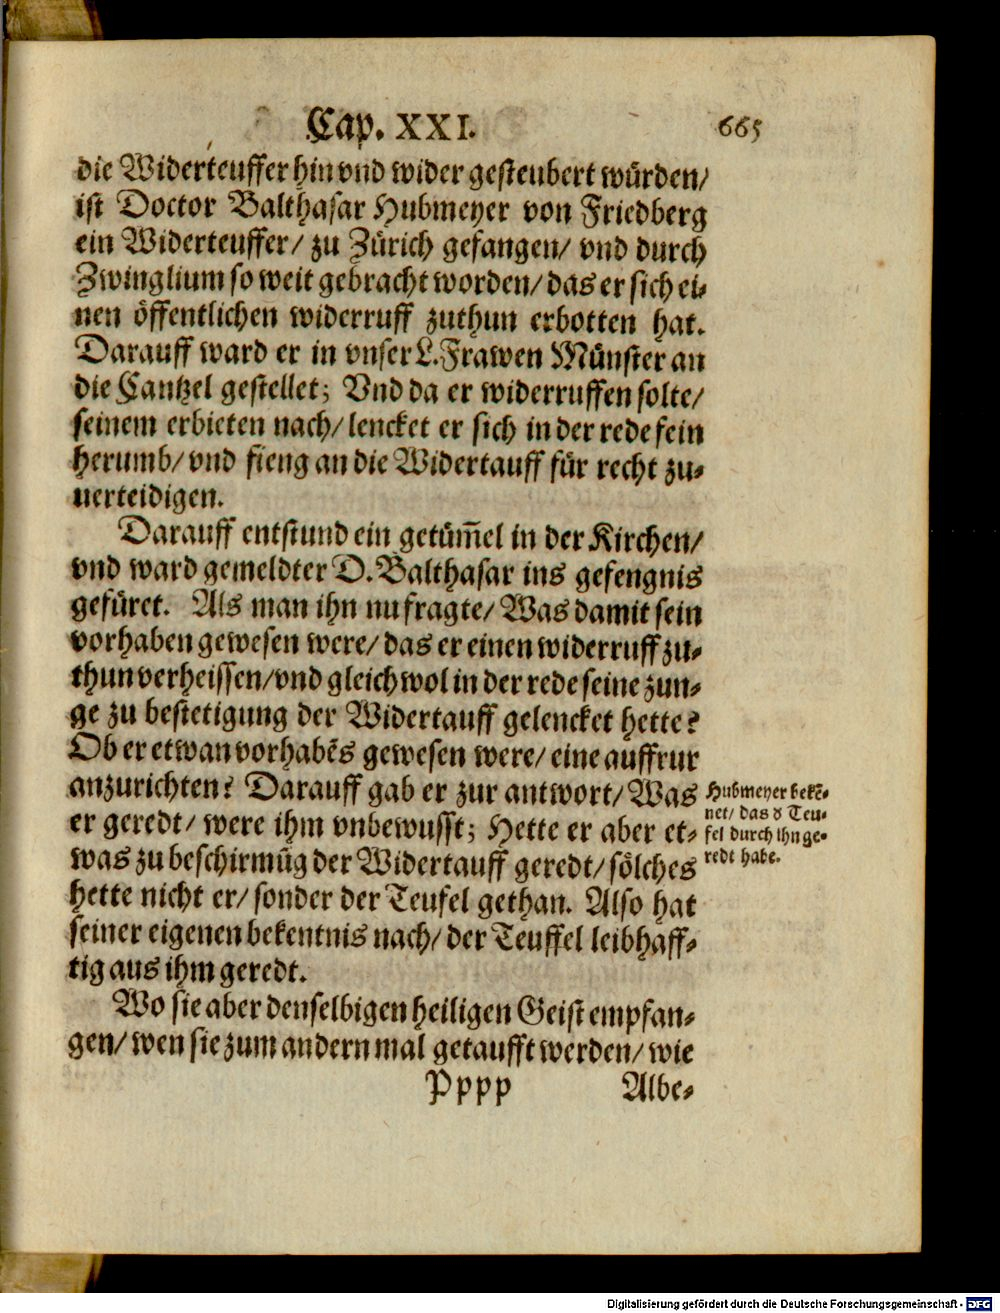 Cap. XXI. 665
die Widerteuffer hin vnd wider gesteubert würden/
ist Doctor Balthasar Hubmeyer von Friedberg
ein Widerteuffer/ zu Zürich gefangen/ vnd durch
Zwinglium so weit gebracht worden/ das er sich ei⸗
nen öffentlichen widerruff zuthun erbotten hat.
Darauff ward er in vnser L. Frawen Münster an
die Cantzel gestellet; Vnd da er widerruffen solte/
seinem erbieten nach/ lencket er sich in der rede fein
herumb/ vnd fieng an die Widertauff für recht zu⸗
uerteidigen.
Darauff entstund ein getüm̃el in der Kirchen/
vnd ward gemeldter D. Balthasar ins gefengnis
gefüret. Als man ihn nu fragte/ Was damit sein
vorhaben gewesen were/ das er einen widerruff zu⸗
thun verheissen/ vnd gleichwol in der rede seine zun⸗
ge zu bestetigung der Widertauff gelencket hette?
Ob er etwan vorhabẽs gewesen were/ eine auffrur
anzurichten? Darauff gab er zur antwort/ Was
er geredt/ were ihm vnbewusst; Hette er aber et⸗
was zu beschirmũg der Widertauff geredt/ sölches
hette nicht er/ sonder der Teufel gethan. Also hat
seiner eigenen bekentnis nach/ der Teuffel leibhaff⸗
tig aus ihm geredt.
Hubmeyer bekẽ⸗
net/ das d Teu⸗
fel durch ihn ge⸗
redt habe.
Wo sie aber denselbigen heiligen Geist empfan⸗
gen/ wen sie zum andern mal getaufft werden/ wie
Pppp Albe⸗
Digitalisierung gefördert durch die Deutsche Forschungsgemeinschaft - DFG